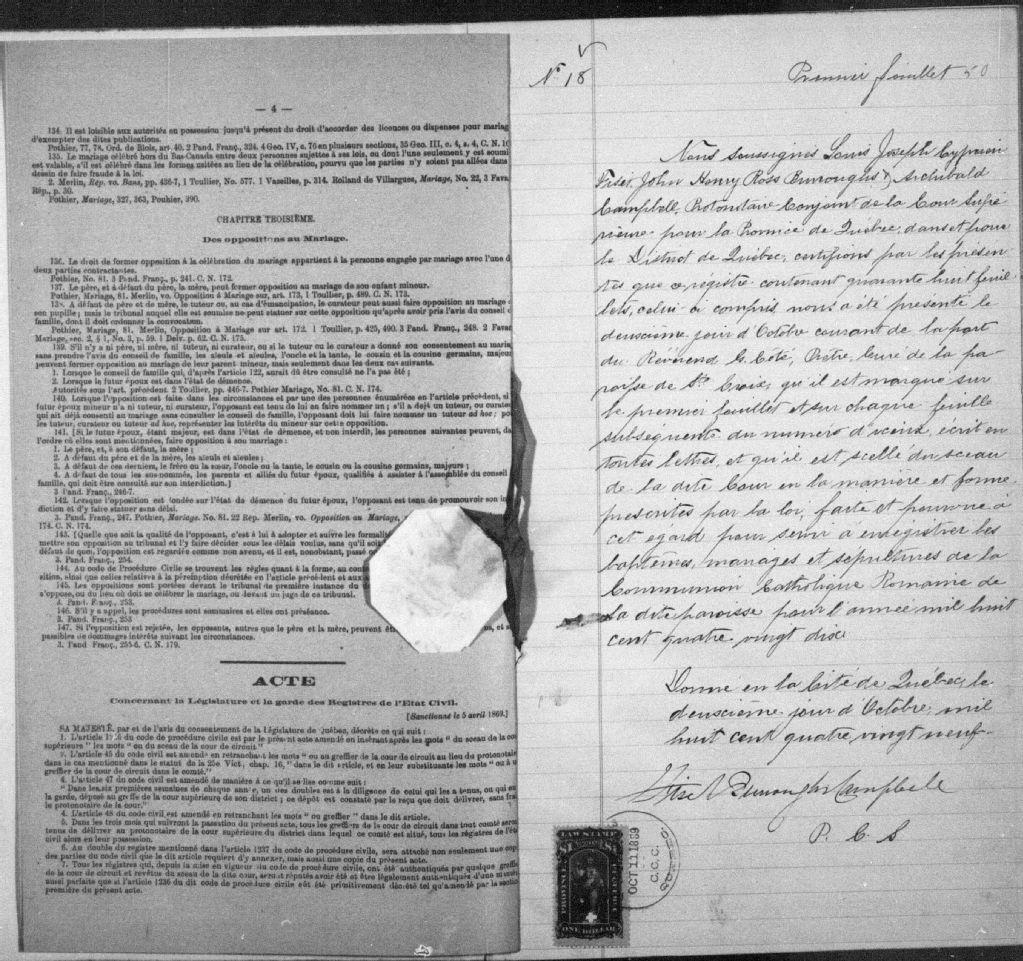 — 4 —
134. Il est loisible aux autorités en possession jusqu'à présent du droit d'accorder des licences ou dispenses pour mariag
d'exempter des dites publications.
Pothier, 77, 78. Ord. de Blois, art. 40. 2 Pand. Franç., 324. 4 Geo. IV, c. 76 en plusieurs sections, 35 Geo. III, c. 4, s. 4, C. N. 16
135. Le mariage célébré hors du Bas-Canada entre deux personnes sujettes à ses lois, ou dont l'une seulement y est soumi
est valable, s'il est célébré dans les formes usitées au lieu de la célébration, pourvu que les parties n'y soient pas allées dans
dessin de faire fraude à la loi.
2. Merlin, Rép. vo. Bans, pp. 436-7, 1 Toullier, No. 577. 1 Vaseilles, p. 314. Rolland de Villargues, Mariage, No. 22, 3 Fava
Rép., p. 30.
Pothier, Mariage, 327, 363, Pouhier, 390.
CHAPITRE TROISIÈME.
Des oppositions au Mariage.
136. Le droit de former opposition à la célébration du mariage appartient à la personne engagée par mariage avec l'une d
deux parties contractantes.
Pothier, No. 81. 3 Pand. Franç., p. 241. C. N. 172.
137. Le père, et à défaut du père, la mère, peut former opposition au mariage de son enfant mineur.
Pothier, Mariage, 81. Merlin, vo. Opposition à Mariage sur, art. 173, 1 Toullier, p. 489. C. N. 173.
138. A défaut de père et de mère, le tuteur ou, au cas d'émancipation, le curateur peut aussi faire opposition au mariage
son pupille; mais le tribunal auquel elle est soumise ne peut statuer sur cette opposition qu'après avoir pris l'avis du conseil
famille, dont il doit ordonner la convocation.
Pothier, Mariage, 81. Merlin, Opposition à Mariage sur art. 172. 1 Toullier, p. 425, 490. 3 Pand. Franç., 248. 2 Favar
Mariage, sec. 2, § 1, No. 3, p. 59. 1 Delv. p. 62. C. N. 175.
139. S'il n'y a ni père, ni mère, ni tuteur, ni curateur, ou si le tuteur ou le curateur a donné son consentement au maria
sans prendre l'avis du conseil de famille, les aïeuls et aïeules, l'oncle et la tante, le cousin et la cousine germains, majeur
peuvent former opposition au mariage de leur parent mineur, mais seulement dans les deux cas suivants.
1. Lorsque le conseil de famille qui, d'après l'article 122, aurait dû être consulté ne l'a pas été;
2. Lorsque le futur époux est dans l'état de démence.
Autorités sous l'art. précédent. 2 Toullier, pp. 446-7. Pothier Mariage, No. 81. C. N. 174.
140. Lorsque l'opposition est faite dans les circonstances et par une des personnes énumérées en l'article précédent, si
futur époux mineur n'a ni tuteur, ni curateur, l'opposant est tenu de lui en faire nommer un; s'il a déjà un tuteur, ou curateur
qui ait déjà consenti au mariage sans consulter le conseil de famille, l'opposant doit lui faire nommer un tuteur ad hoc; po
les tuteur, curateur ou tuteur ad hoc, représenter les intérêts du mineur sur cette opposition.
141. [Si le futur époux, étant majeur, est dans l'état de démence, et non interdit, les personnes suivantes peuvent, da
l'ordre où elles sont mentionnées, faire opposition à son mariage:
1. Le père, et, à son défaut, la mère;
2. A défaut du père et de la mère, les aïeuls et aïeules;
3. A défaut de ces derniers, le frère ou la sœur, l'oncle ou la tante, le cousin ou la cousine germains, majeurs;
4. A défaut de tous les sus-nommés, les parents et alliés du futur époux, qualifiés à assister à l'assemblée du conseil
famille, qui doit être consulté sur son interdiction.]
3 Pand. Franç., 246-7.
142. Lorsque l'opposition est fondée sur l'état de démence du futur époux, l'opposant est tenu de promouvoir son in
diction et d'y faire statuer sans délai.
3. Pand. Franç., 247. Pothier, Mariage. No. 81. 22 Rep. Merlin, vo. Opposition au Mariage,
174. C. N. 174.
143. [Quelle que soit la qualité de l'opposant, c'est à lui à adopter et suivre les formalit
mettre son opposition au tribunal et l'y faire décider sous les délais voulus, sans qu'il soit
défaut de quoi, l'opposition est regardée comme non avenu, et il est, nonobstant, passé
3. Pand. Franç., 254.
144. Au code de Procédure Civile se trouvent les règles quant à la forme, au con
sition, ainsi que celles relatives à la péremption décrétée en l'article précédent et aux
145. Les oppositions sont portées devant le tribunal de première instance du
s'oppose, ou du lieu où doit se célébrer le mariage, ou devant un juge de ce tribunal.
4. Pand. Franç., 253.
146. S'il y a appel, les procédures sont sommaires et elles ont préséance.
3. Pand. Franç., 253
147. Si l'opposition est rejetée, les opposants, autres que le père et la mère, peuvent êt
possibles de dommages intérêts suivant les circonstances.
3. Pand Franç., 255-6. C. N. 179.
ACTE
Concernant la Législature et la garde des Registres de l'Etat Civil.
[Sanctionné le 5 avril 1869.]
SA MAJESTÉ, par et de l'avis du consentement de la Législature de Québec, décrète ce qui suit:
1. L'article 1236 du code de procédure civile est par le présent acte amendé en insérant après les mots "du sceau de la cou
supérieure" les mots "ou du sceau de la cour de circuit"
2. L'article 45 du code civil est amendé en retranchant les mots "ou au greffier de la cour de circuit au lieu du protonotai
dans le cas mentionné dans le statut de la 25e Vict., chap. 16," dans le dit article, et en leur substituants les mots "ou à u
greffier de la cour de circuit dans le comté."
4. L'article 47 du code civil est amendé de manière à ce qu'il se lise comme suit:
"Dans les six premières semaines de chaque année, un des doubles est à la diligence de celui qui les a tenus, ou qui en
la garde, déposé au greffe de la cour supérieure de son district; ce dépôt est constaté par le reçu que doit délivrer, sans fra
le protonotaire de la cour."
4. L'article 48 du code civil est amendé en retranchant les mots "ou greffier" dans le dit article.
5. Dans les trois mois qui suivront la passation du présent acte, tous les greffiers de la cour de circuit dans tout comté seron
tenus de délivrer au protonotaire de la cour supérieure du district dans lequel ce comté est situé, tous les registres de l'éta
civil alors en leur possession.
6. Au double du registre mentionné dans l'article 1237 du code de procédure civile, sera attaché non seulement une cop
des parties du code civil que le dit article requiert d'y annexer, mais aussi une copie du présent acte.
7. Tous les régistres qui, depuis la mise en vigueur du code de procédure civile, ont été authentiqués par quelque greffi
de la cour de circuit et revêtus du sceau de la dite cour, seront réputés avoir été et être légalement authentiqués d'une m
aussi parfaite que si l'article 1236 du dit code de procédure civile eût été primitivement décrété tel qu'amendé par la sectio
première du présent acte.
No 18
Premier feuillet 50
Nous soussignés Louis Joseph Cyprien
Fiset, John Henry Ross Burroughs & Archibald
Campbell, Protonotaire Conjoint de la Cour Supé
rieure pour la Province de Québec, dans et pour
le District de Québec, certifions par les présen
tes que ce registre contenant quarante huit feuil
lets, celui ci compris, nous a été présenté le
deuxième jour d'Octobre courant de la part
du Révérend G. Côté, Prêtre, Curé de la pa
roisse de Ste Croix, qu'il est marqué sur
le premier feuillet et sur chaque feuille
subséquente du numéro d'icelui, écrit en
toutes lettres, et qu'il est scellé du sceau
de la dite Cour en la manière et forme
prescrites par la loi, faite et pourvue à
cet égard pour servir à enregistrer les
baptêmes, mariages et sépultures de la
Communion Catholique Romaine de
la dite paroisse pour l'année mil huit
cent quatre vingt dix
Donné en la Cité de Québec, le
deuxième jour d'Octobre, mil
huit cent quatre vingt neuf.
Fiset Burroughs Campbell
P. C. S
LAW STAMP
$1 $1
PROVINCE
ONE DOLLAR
OCT 11 1889
C.C.C.